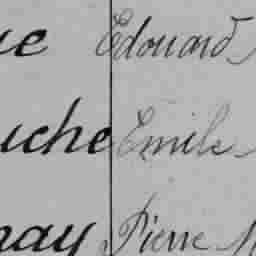 ue Edouard
uche Emile
nay Pierre M